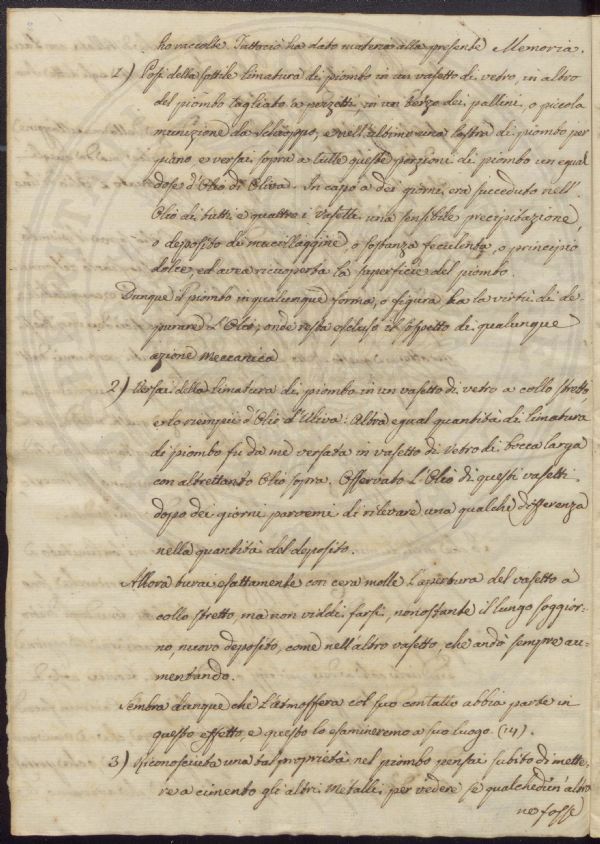 ho raccolte. Tuttociò ha dato materia alla presente Memoria.
1) Posi della sottile limatura di piombo in un vasetto di vetro, in altro
del piombo tagliato a pezzetti, in un terzo dei pallini, o piccola
munizione da schioppo, e nell'ultimo una lastra di piombo per
piano, e versai sopra a tutte queste porzioni di piombo un egual
dose d'Olio di Oliva. In capo a dei giorni era succeduto nell'
Olio di tutti e quattro i vasetti una sensibile precipitazione,
o deposito di mucillaggine, o sostanza feculenta, o principio
dolce, ed avea ricuoperta la superficie del piombo.
Dunque il piombo in qualunque forma, o figura ha la virtù di de
purare l'Olio; onde resta escluso il sospetto di qualunque
azione meccanica
2) Versai della limatura di piombo in un vasetto di vetro a collo stretto,
e lo riempii d'Olio d'Uliva: Altra egual quantità di limatura
di piombo fu da me versata in vasetto di vetro di bocca larga
con altrettanto Olio sopra. Osservato l'Olio di questi vasetti
dopo dei giorni parvemi di rilevare una qualche differenza
nella quantità del deposito.
Allora turai esattamente con cera molle l'apertura del vasetto a
collo stretto, ma non viddi farsi, nonostante il lungo soggior-
no, nuovo deposito, come nell'altro vasetto, che andò sempre au-
mentando.
Sembra dunque che l'atmosfera col suo contatto abbia parte in
questo effetto, e questo lo esamineremo a suo luogo. (14).
3) Riconosciuta una tal proprietà nel piombo pensai subito di mette-
re a cimento gli altri Metalli, per vedere se qualchedun'altro
ne fosse